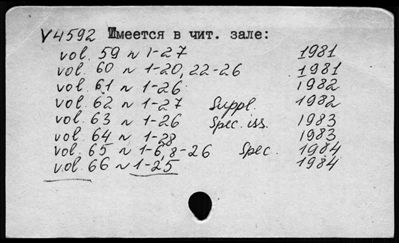 V4592 Имеется в чит. зале:
vol. 59 N 1-27 1981
vol. 60 N 1-20, 22-26 1981
vol. 61 N 1-26 1982
vol. 62 N 1-27 Suppl. 1982
vol. 63 N 1-26 Spec. iss. 1983
vol. 64 N 1-28 1983
vol. 65 N 1-6, 8-26 Spec. 1984
vol. 66 N 1-25 1984